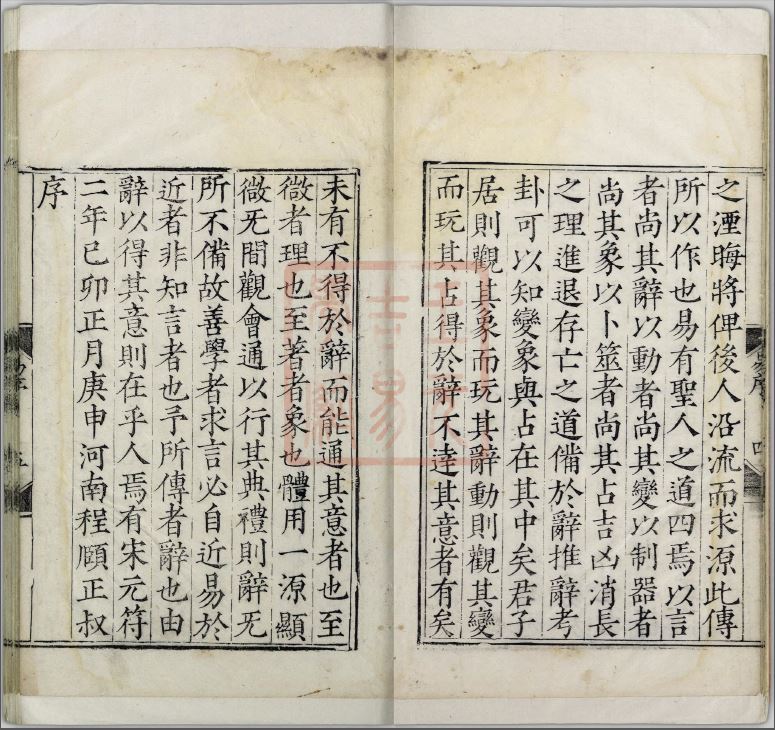 之湮晦將俾後人沿流而求源此傳
所以作也易有聖人之道四焉以言
者尚其辭以動者尚其變以制器者
尚其象以卜筮者尚其占吉凶消長
之理進退存亡之道備於辭推辭考
卦可以知變象與占在其中矣君子
居則觀其象而玩其辭動則觀其變
而玩其占得於辭不達其意者有矣
易序 四
未有不得於辭而能通其意者也至
微者理也至著者象也體用一源顯
微无間觀會通以行其典禮則辭无
所不備故善學者求言必自近易於
近者非知言者也予所傳者辭也由
辭以得其意則在乎人焉有宋元符
二年己卯正月庚申河南程頤正叔
序
易序 五